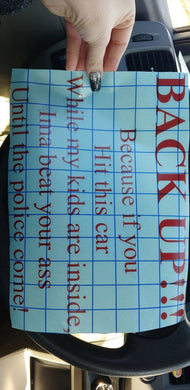 BACK UP!!!
Because if you
Hit this car
While my kids are inside,
Ima beat your ass
Until the police come!